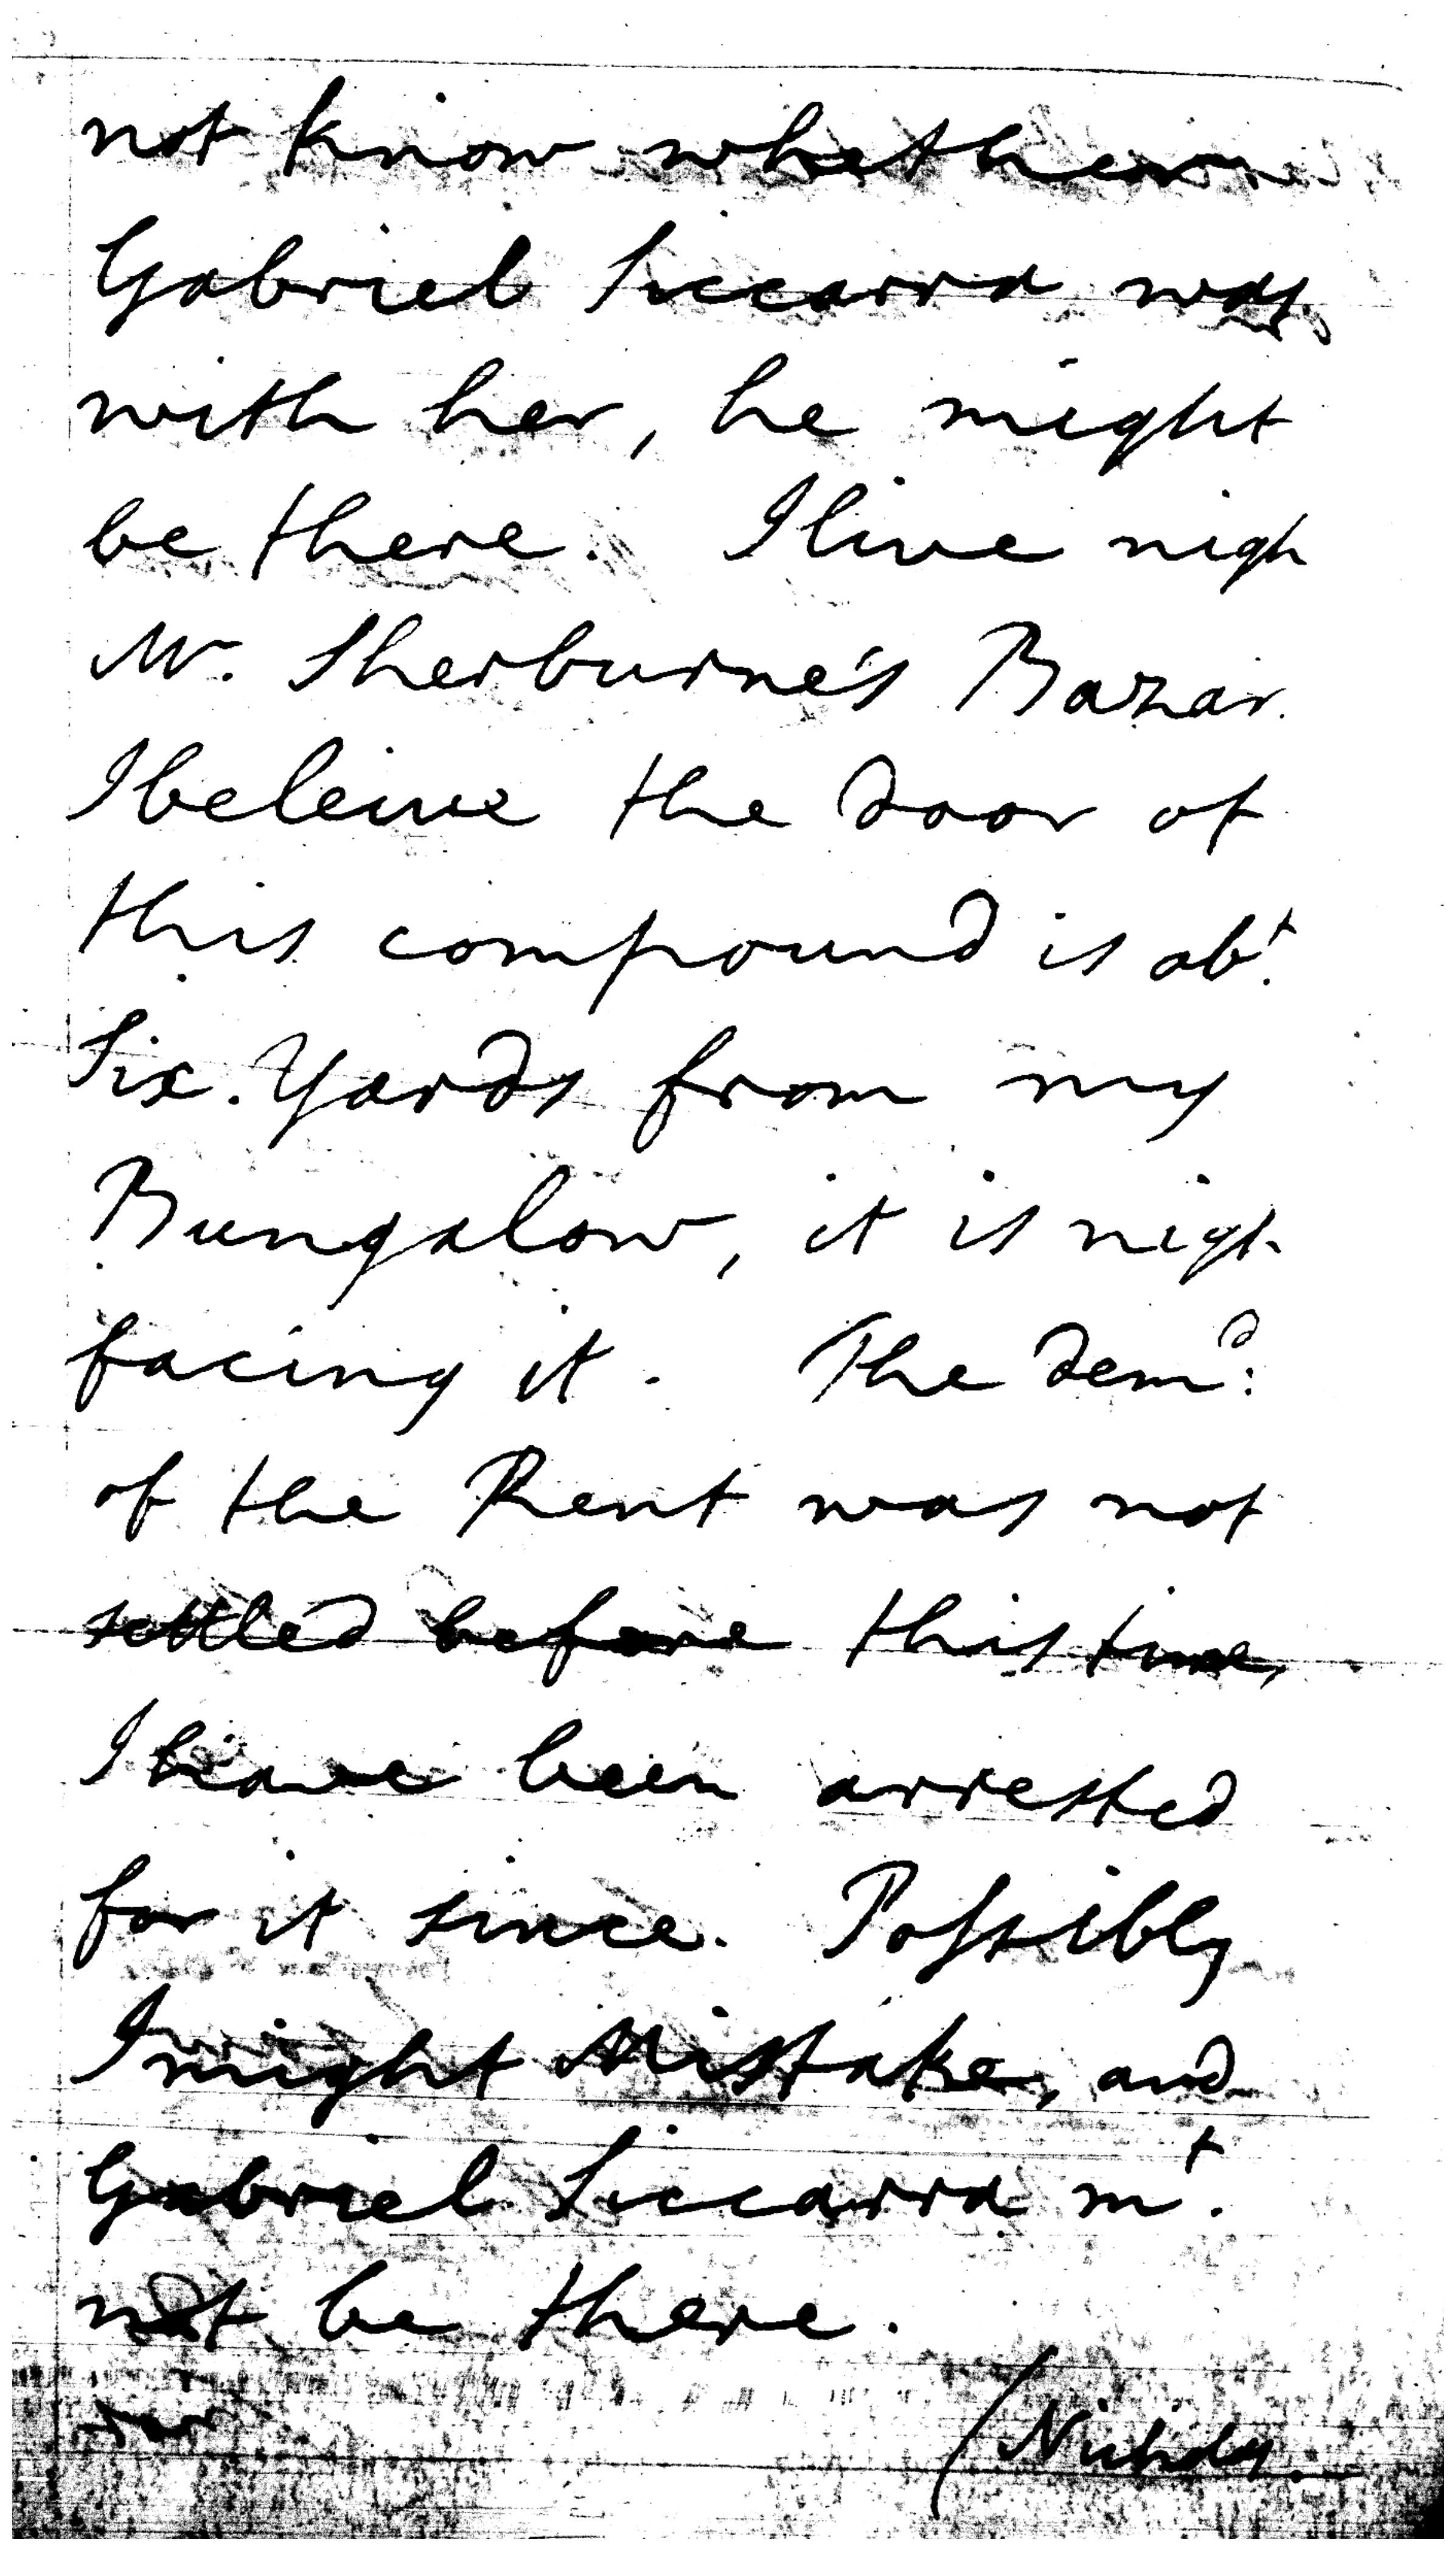 not know whether
Gabriel Siccarra was
with her, he might
be there. I live nigh
Mr. Sherburne's Bazar.
I beleive the door of
this compound is abt.
Six Yards from my
Bungalow, it is nigh
facing it. The demd:
of the Rent was not
settled before this time,
I have been arrested
for it since. Possibly
I might Mistake, and
Gabriel Siccarra mt.
not be there.